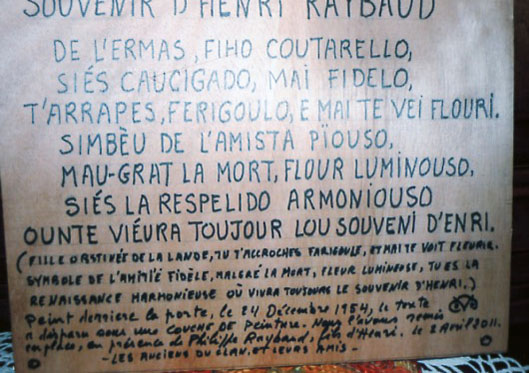 SOUVENIR D'HENRI RAYBAUD
DE L'ERMAS, FIHO COUTARELLO,
SIÉS CAUCIGADO, MAI FIDELO,
T'ARRAPES, FERIGOULO, E MAI TE VEI FLOURI.
SIMBÈU DE L'AMISTA PÏOUSO,
MAU-GRAT LA MORT, FLOUR LUMINOUSO,
SIÉS LA RESPELIDO ARMONIOUSO
OUNTE VIÉURA TOUJOUR LOU SOUVENI D'ENRI.
(FILLE OBSTINÉE DE LA LANDE, TU T'ACCROCHES FARIGOULE, ET MAI TE VOIT FLEURIR.
SYMBOLE DE L'AMITIÉ FIDÈLE, MALGRÉ LA MORT, FLEUR LUMINEUSE, TU ES LA
RENAISSANCE HARMONIEUSE OÙ VIVRA TOUJOURS LE SOUVENIR D'HENRI.)
Peint derrière la porte, le 24 Décembre 1954, le texte
a disparu sous une COUCHE DE PEINTURE. Nous l'avons remis
en place, en présence de Philippe Raybaud, fils d'Henri. le 2 Avril 2011.
- LES ANCIENS DU CLAN, ET LEURS AMIS -